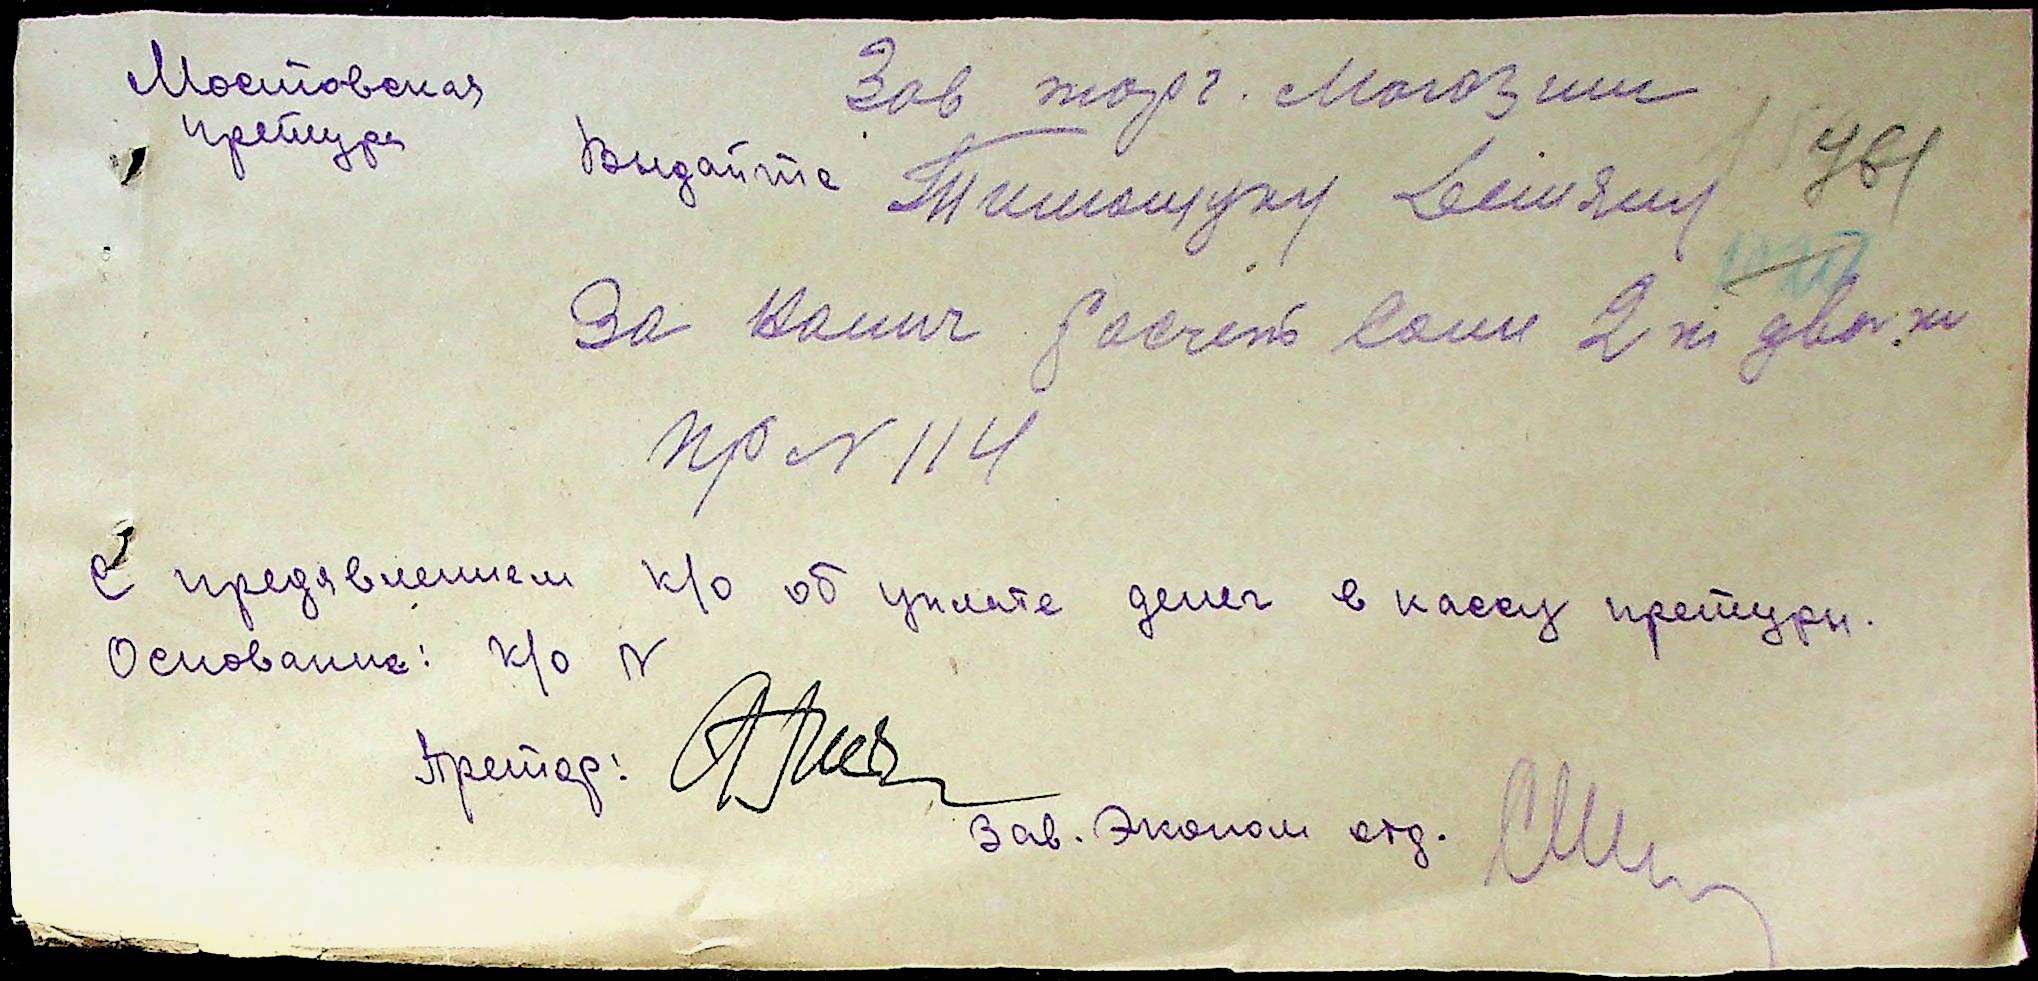 Мостовская
претура
Зав торг. Магазин
Выдайте Тимощуку Демяну
За налич расчет Соли 2 кг два кг
пр N 114
С предявлением к/о об уплате денег в кассу претуры.
Основание: к/о N
Претор:
Зав. Эконом отд.